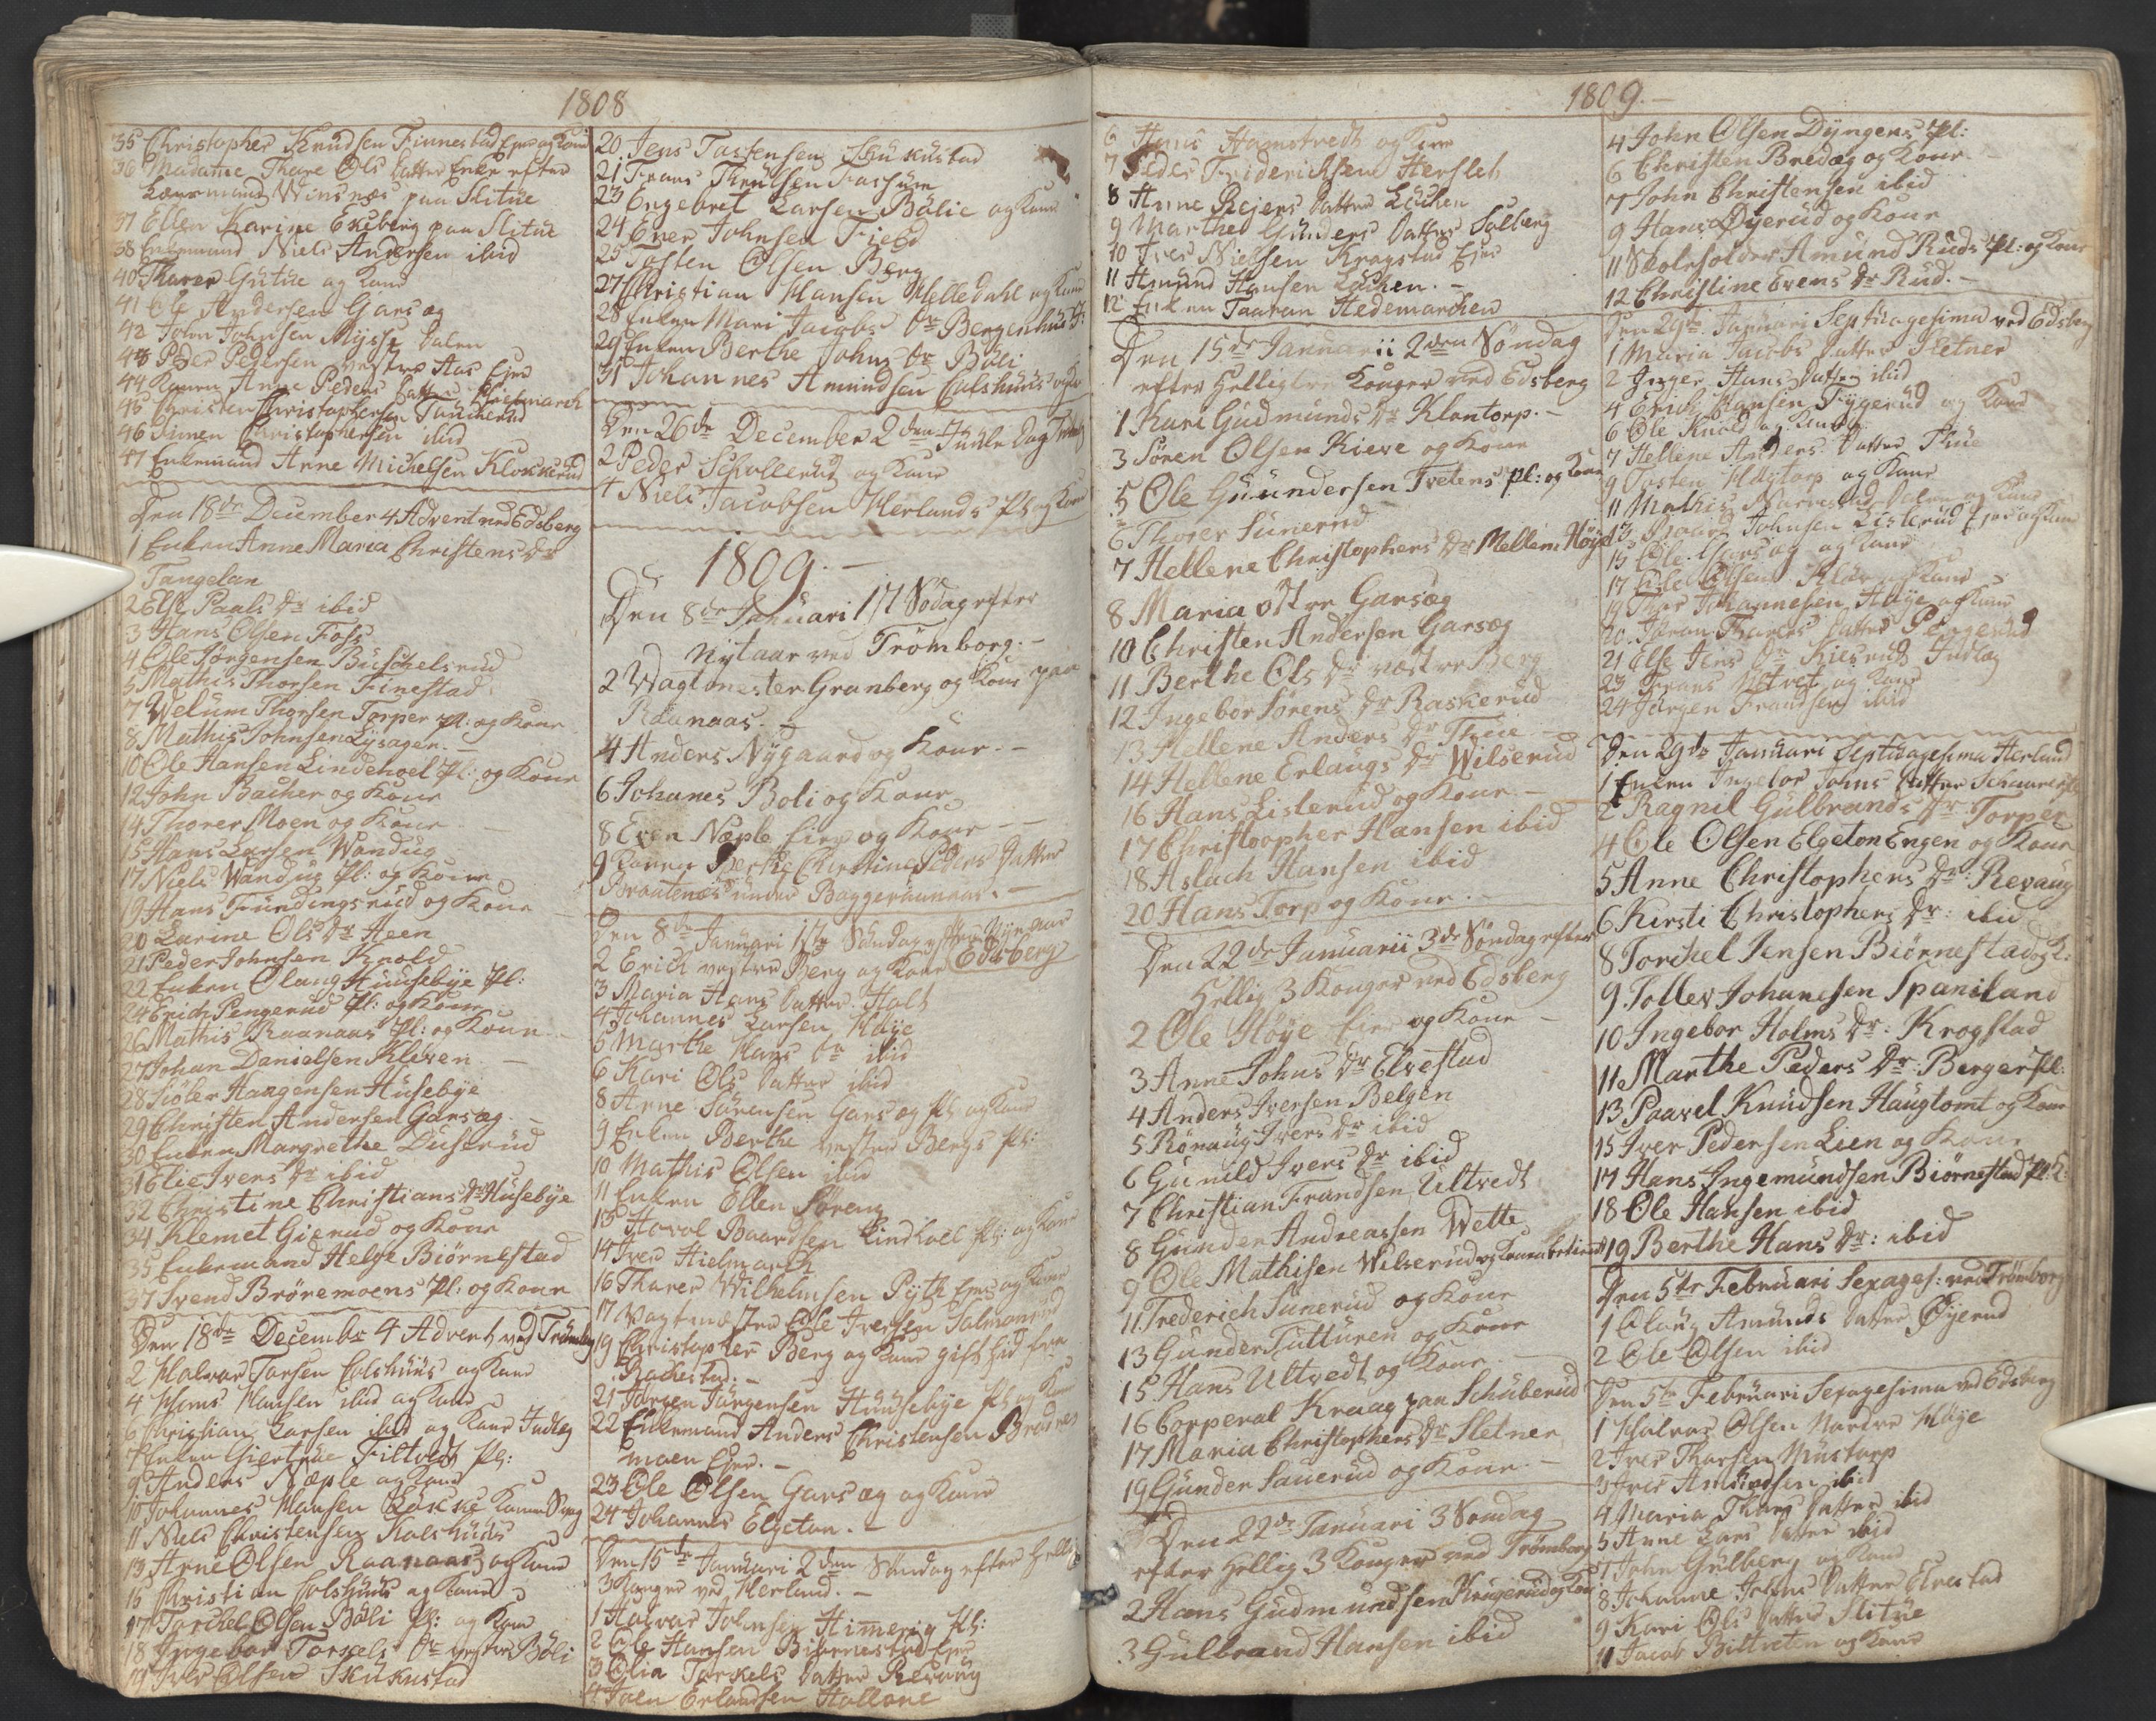 1808
35 Christopher Knudsen Finnestad Ejer og Kone
36 Madame Thore Ols Datter Enke efter
Winsnæs paa Slitüe
37 Ellen Karine Ekeberg paa Slitüe
38 Enkemand Niels Andersen ibid
40 Thorer Gutüe og Kone
41 Ole Andersen Garsæg
42 John Johnsen Mysse Dalen
43 Peder Pedersen vestre Aas Ejer
44 Konen Anne Peders Datter
45 Christen Christophersen
46 Simen Christophersen ibid
47 Enkemand Arne Michelsen Klokkerud
Den 18de December 4 Advent ved Edsberg
1 Enken Anne Maria Christens Dr
Tangelan
2 Else Paals Dr ibid
3 Hans Olsen Foss
4 Ole Jørgensen Buschelsrud
5 Mathis Thorsen Finestad
7 Welüm Thorsen Torper Pl: og Kone
8 Mathis Johnsen Lysagen.
10 Ole Hansen Lindehoel Pl: og Kone
12 John Bacher og Kone
14 Thorer Moen og Kone
15 Hans Larsen Wandug
17 Niels Wandug Pl: og Kone
19 Hans Fundingsrud og Kone
20 Larine Ols Dr Heen
21 Peder Johnsen Knold
22 Enken Olaug Huusebye Pl:
24 Erich Pengerud Pl: og Kone
26 Mathis Raanaas Pl: og Kone
27 Johan Danielsen Kleven
28 Siøler Haagensen Husebye
29 Christen Andersen Garsæg.
30 Enken Margrethe Duserud
31 Elie Ivers Dr ibid
32 Christine Christians Dr Husebye
34 Klemet Gierud og Kone
35 Enkemand Helge Biørnestad
37 Svend Brøremoens Pl: og Kone
Den 18de Decembr 4 Advent ved Trömborg
2 Halvor Torsen Colshuus og Kone
4 Hans Hansen ibid og Kone
6 Christian Larsen ibid og Kone Inderst
7 Enken Giertrue Filtvedt Pl:
9 Anders Næple og Kone
10 Johannes Hansen
11 Niels Christensen Kolshuus
13 Arne Olsen Raanaas og Kone
15 Christian Colshuus og Kone
17 Torchel Olsen Böli Pl: og Kone
18 Ingebor Torkels Dr vestre Böli
19 Iver Olsen Skukustad
20 Jens Tostensen Skukustad
21 Frans Knutsen
23 Engebret Larsen Bölie og Kone
24 Ener Johnsen Field
25 Tosten Olsen Berg
27 Christian Hansen Helledahl og Kone
28 Enken Mari Jacobs Dr Bergenhus
29 Enken Berthe Johns Dr Böli
31 Johannes Amundsen Colshuus og Ko
Den 26de December 2den Juule Dag
2 Peder Schollerud og Kone
4 Niels Jacobsen Herlands Pl og Kone
1809.-
Den 8de Januari 1st Södag efter
Nytaar ved Trömborg.-
2 Wagtmester Granberg og Kone paa
Raanaas.
4 Anders Nygaard og Kone.-
6 Johanes Boli og Kone
8 Even Næple Eier og Kone
9 Konen Berthe Christine Peders Datter
Braatenæs under Baggeraanaas.-
Den 8de Januari 1ste Söndag efter Nyeaar
2 Erich vestre Berg og Kone Edsberg
3 Maria Hans Datter Holt
4 Johannes Larsen Höye
5 Marthe Hans Dr ibid
6 Kari Ols Datter ibid
8 Arne Sörensen Garsæg Pl og Kone
9 Enken Berthe vestre Bergs Pl:
10 Mathis Olsen ibid
11 Enken Ellen
13 Hovel Baardsen Lindhoel Pl: og Kone
14 Iver Hielmarch
16 Thorer Wilhelmsen Pyth Ejer og Kone
17 Vagtmester Ole Iversen Salmonrud
19 Christopher Berg og Kone gift hid fra
Rachestad.-
21 Jörgen Jörgensen Huusebye Pl og Kone
22 Enkemand Anders Christensen Brödre
moen Ejer.-
23 Ole Olsen Garsæg og Kone
24 Johannes Elgeton.
Den 15de Januari 2den Söndag efter Hellig
3 Konger ved Herland.
1 Halvor Johnsen Himerig Pl:
2 Ole Hansen Biørnestad Ejer
3 Olia Torkels Datter Revaug
4 Joen Erlandsen Hallane
1809.-
6 Hans Hamstvedt og Kone
7 Peder Friderichsen Hersleth
8 Anne Rejers Datter Löchen
9 Marthe Gunders Datter Solberg
10 Iver Nielsen Kragstad Ejer
11 Amund Hansen Löchen.-
12 Enken Taaran Hedemarchen
Den 15de Januarii 2den Söndag
efter Helligtre Konger ved Edsberg
1 Kari Gudmunds Dr Klontorp.-
3 Sören Olsen Kiere og Kone
5 Ole Guundersen Tvetens Pl: og Kone
6 Thorer Sunerud
7 Hellene Christophers Dr Mellem Høye
8 Maria østre Garsæg
10 Christen Andersen Garsæg
11 Berthe Ols Dr væstre Berg
12 Ingebor Sørens Dr Raskerud
13 Hellene Anders Dr Thüe
14 Hellene Erlaugs Dr Wilserud
16 Hans Listerud og Kone.-
17 Christoopher Hansen ibid
18 Aslach Hansen ibid
20 Hans Torp og Kone.
Den 22de Januarii 3de Söndag efter
Hellig 3 Konger ved Edsberg
2 Ole Høye Eier og Kone
3 Anne Johns Dr Elvestad
4 Anders Iversen Belgen
5 Rønaug Ivers Dr ibid
6 Gunild Ivers Dr ibid
7 Christian Frandsen Ultvedt
8 Gunder Andreassen Wette
9 Ole Mathisen Wilserud og Kone
11 Frederich Sunerud og Kone
13 Gunder Tutturen og Kone
15 Hans Ultvedt og Kone.
16 Corperal Kraag paa Schuberud
17 Maria Christophers Dr Sletner
19 Gunder Sauerud og Kone.-
Den 22de Januari 3 Söndag
efter Hellig 3 Konger ved Trömborg
2 Hans Gudmundsen Krugerud og Kone
3 Gulbrand Hansen ibid
4 John Olsen Dyngens Pl:
6 Christen Bredæg og Kone.
7 John Christensen ibid
9 Hans Øyerud og Kone
11 Skoleholder Amund Ruds Pl: og Kone
12 Christine Evens Dr Rud.-
Den 29de Januari Septuagesima ved Edsberg
1 Maria Jacobs Datter Sletner
2 Inger Hans Datter ibid
4 Erich Hansen Fygerud og Kone
6 Ole Knold og Kone
7 Hellene Anders Datter Thue
9 Tosten Huytorp og Kone
11 Mathis Narvestad Dalen og Kone
13 Baard Johnsen Listerud Ejer og Kone
15 Ole Garsæg og Kone
17 Ole Olsen og Kone
19 Thor Johannesen Høye og Kone
20 Joran Thorers Datter Pengerud
21 Else Jens Dr Kiesrud Inderst
23 Frans Ultvet og Kone
24 Jörgen Frandsen ibid
Den 29de Januari Septuagesima Herland
1 Enken Ingebor Johns Datter
2 Ragnil Gulbrands Dr Torper
4 Ole Olsen Elgeton Engen og Kone
5 Anne Christophers Dr: Revaug
6 Kirsti Christophers Dr: ibid
8 Torchel Jensen Biørnestad og K:
9 Toller Johanesen Spaniland
10 Ingebor Holms Dr. Krogstad
11 Marthe Peders Dr. Berger Pl:
13 Paavel Knudsen Haugtomt og Kone
15 Iver Pedersen Lien og Kone
17 Hans Ingemundsen Biørnestad Pl: K
18 Ole Hansen ibid
19 Berthe Hans Dr: ibid
Den 5te Februari Sexages: ved Trömborg
1 Olaug Amunds Datter Øyerud
2 Ole Olsen ibid
Den 5te Februari Sexagesima ved Edsberg
1 Halvor Olsen Nordre Høye
2 Iver Thorsen Mustorp
3 Iver Amundsen ibid
4 Maria Thors Datter ibid
5 Anne Lars Datter ibid
7 John Gulberg og Kone
8 Johanne Johns Datter Elvestad
9 Kari Ols Datter Slitüe
11 Jacob Biltveten og Kone